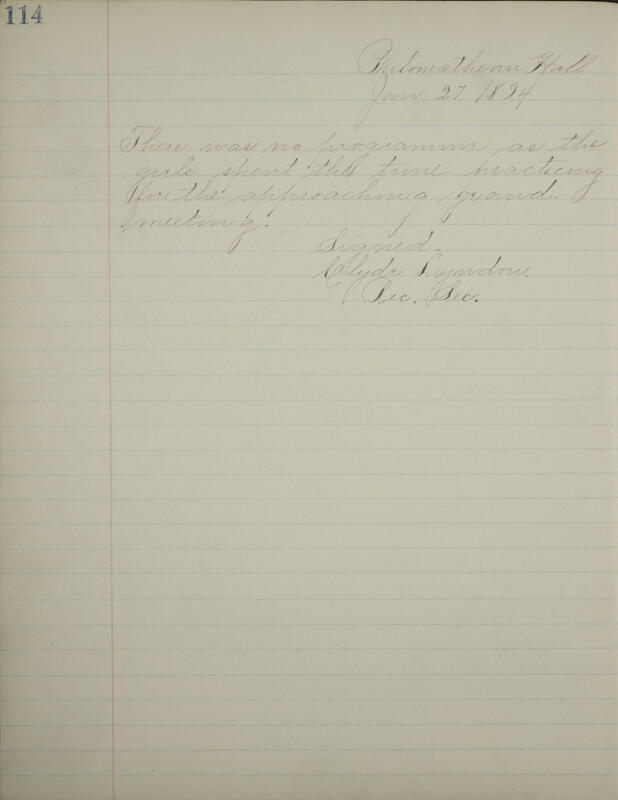 114
Philomathean Hall
Jan. 27. 1894.
There was no programme as the
girls spent the time practicing
for the approaching grand
meeting.
Signed.
Clyde Lyndon.
Rec. Sec.